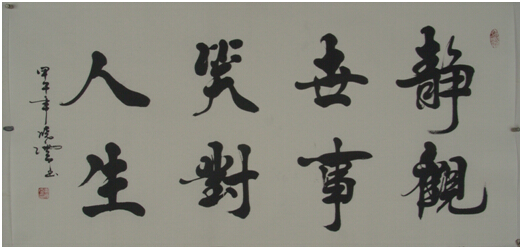 静觀
世事
笑對
人生
甲午年晓書